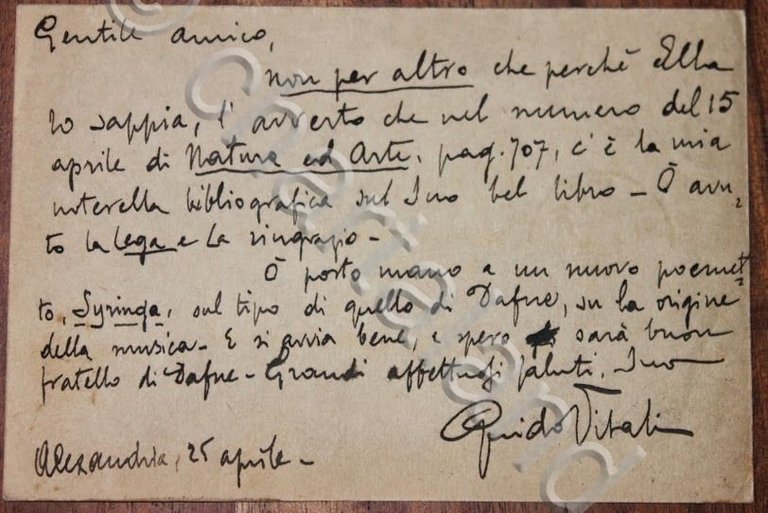 Gentile amico,
non per altro che perchè Ella
lo sappia, l'avverto che nel numero del 15
aprile di Natura ed Arte, pag. 707, c'è la mia
noterella bibliografica sul Suo bel libro - Ò avu=
to la Lega e La ringrazio -
Ò posto mano a un nuovo poemet=
to, Syringa, sul tipo di quello di Dafne, su la origine
della musica - E si avvia bene, e spero sarà buon
fratello di Dafne - Grandi affettuosi saluti, Suo
Guido Vitali
Alexandria, 25 aprile -
© Chartaland